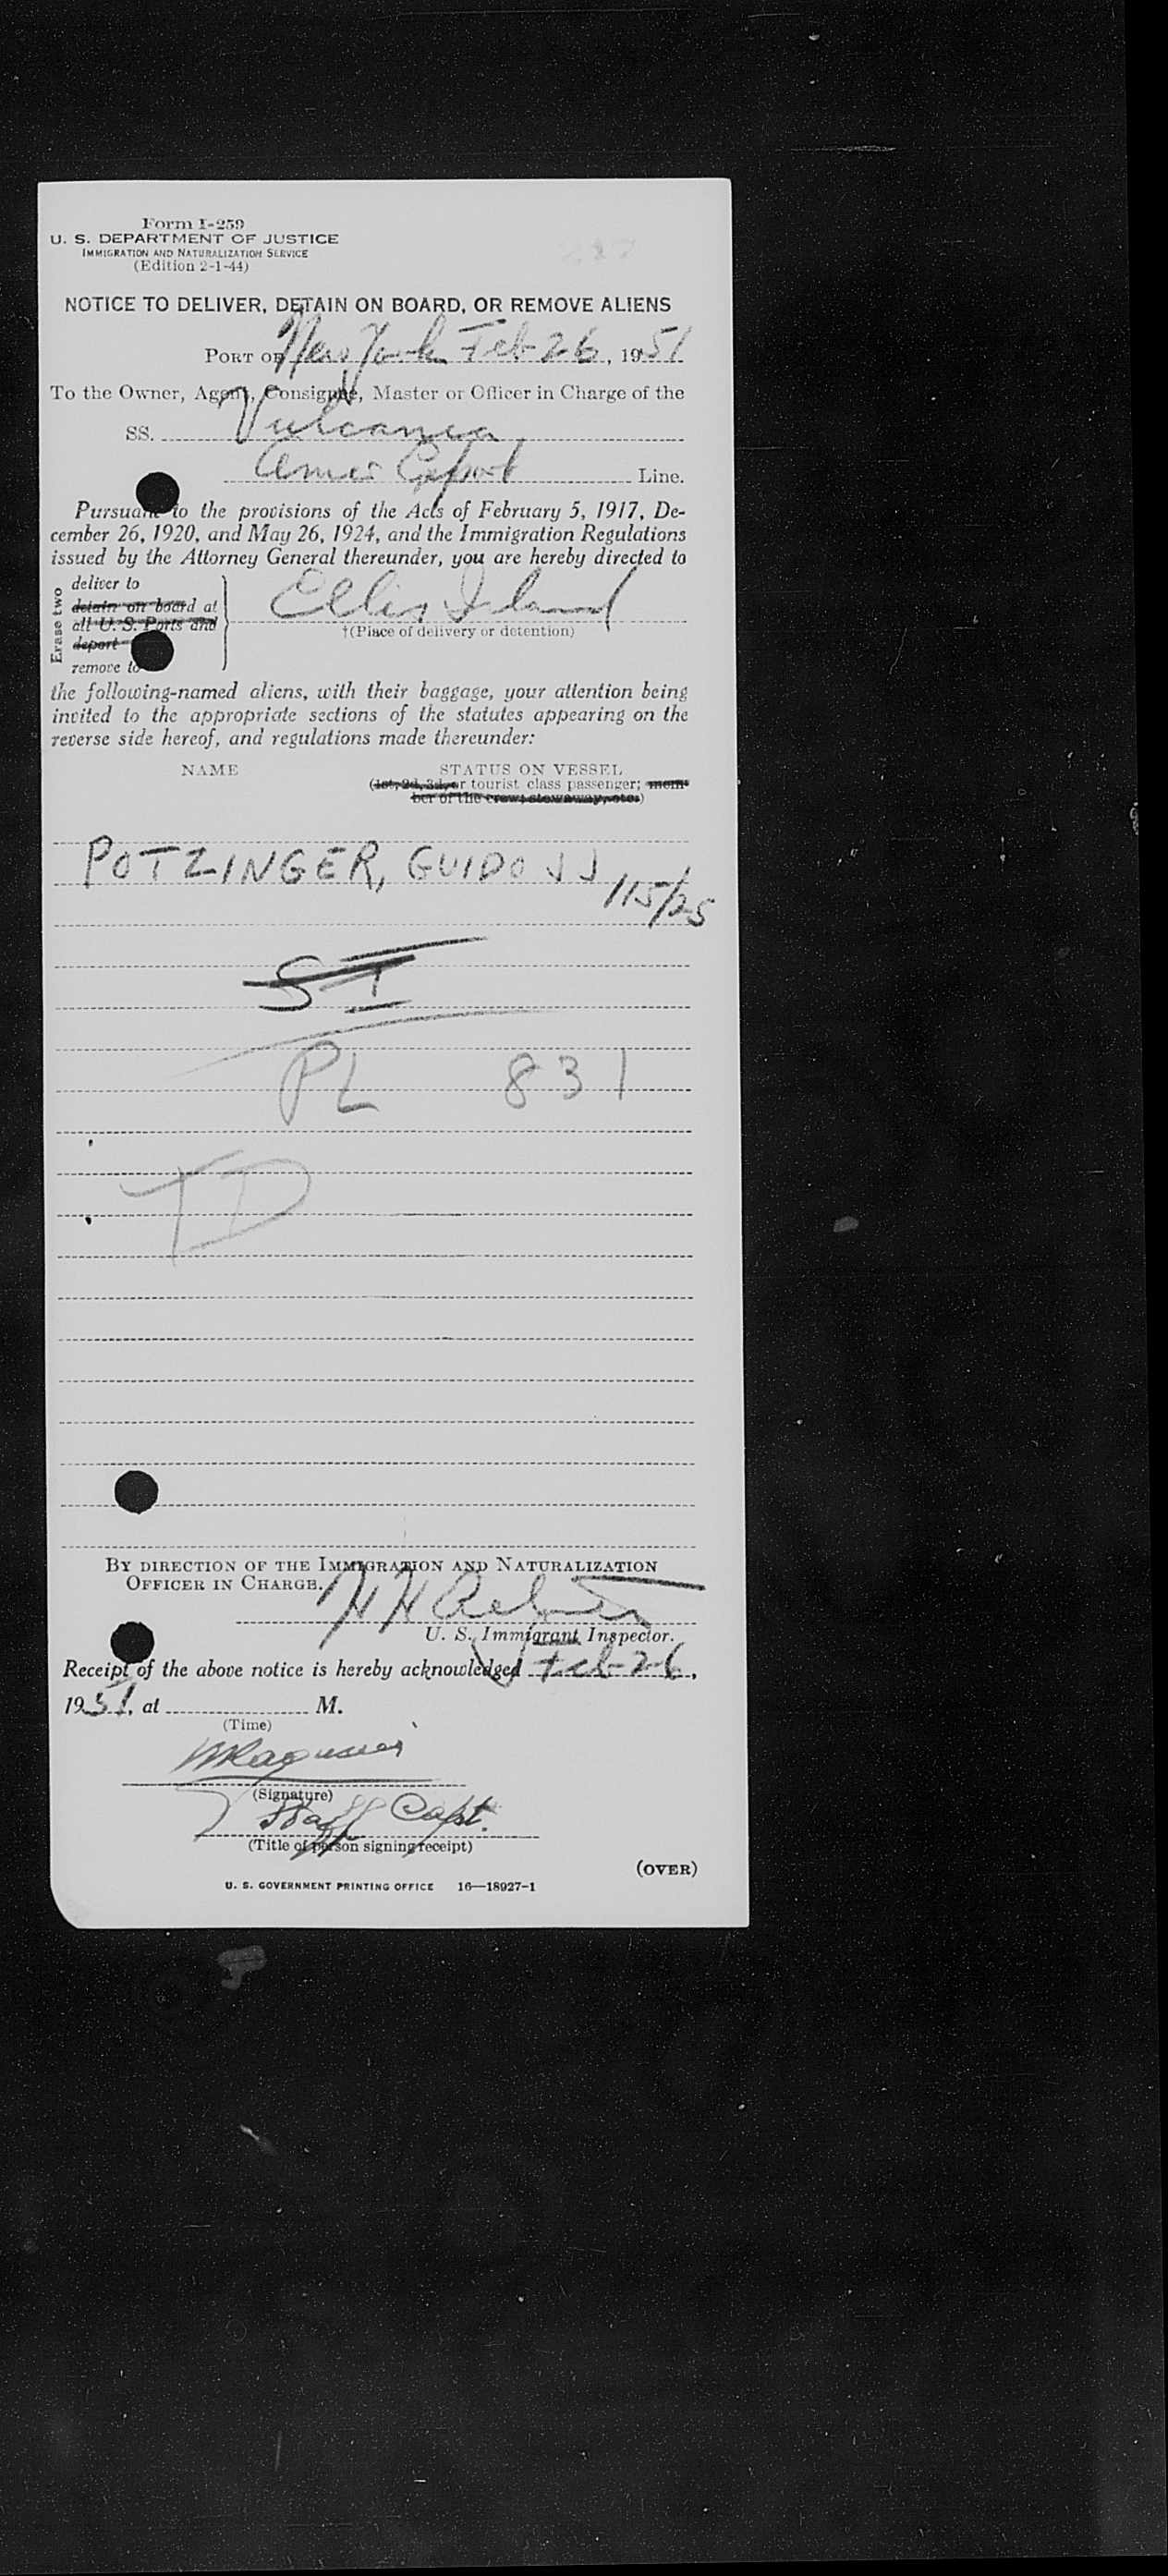 Form I-259
U. S. DEPARTMENT OF JUSTICE
IMMIGRATION AND NATURALIZATION SERVICE
(Edition 2-1-44)
NOTICE TO DELIVER, DETAIN ON BOARD, OR REMOVE ALIENS
PORT OF New York Feb 26, 1951
To the Owner, Agent, Consignee, Master or Officer in Charge of the
SS. Vulcania
Amer Export Line.
Pursuant to the provisions of the Acts of February 5, 1917, De-
cember 26, 1920, and May 26, 1924, and the Immigration Regulations
issued by the Attorney General thereunder, you are hereby directed to
Erase two
deliver to
detain on board at
all U. S. Ports and
deport
remove to
Ellis Island
†(Place of delivery or detention)
the following-named aliens, with their baggage, your attention being
invited to the appropriate sections of the statutes appearing on the
reverse side hereof, and regulations made thereunder:
NAME STATUS ON VESSEL
(1st, 2d, 3d, or tourist class passenger; mem-
ber of the crew; stowaway, etc.)
POTZINGER, GUIDO JJ 115/25
SI
PL 831
TD
BY DIRECTION OF THE IMMIGRATION AND NATURALIZATION
OFFICER IN CHARGE.
H H
U. S. Immigrant Inspector.
Receipt of the above notice is hereby acknowledged Feb 26,
1951, at M.
(Time)
(Signature)
Staff Capt.
(Title of person signing receipt)
(OVER)
U. S. GOVERNMENT PRINTING OFFICE 16—18927-1